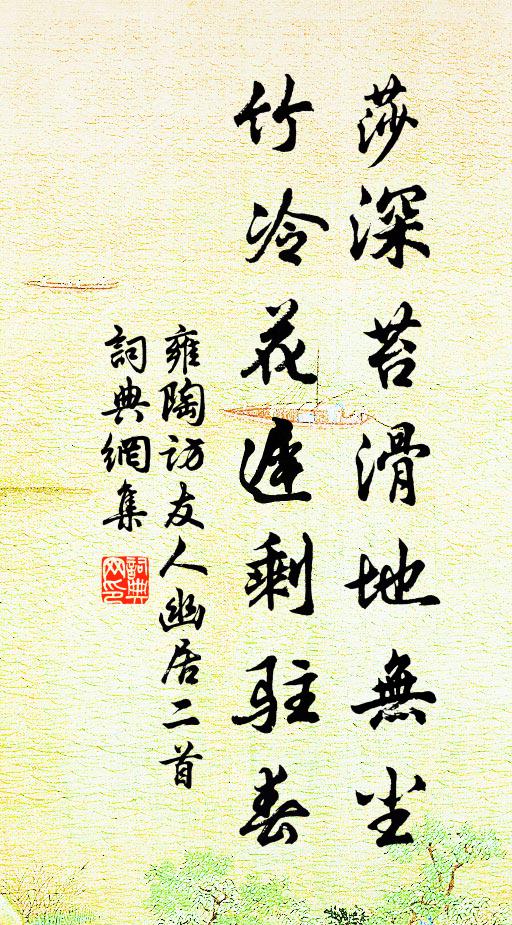 莎深苔滑地無尘
竹冷花遲剩駐春
雍陶访友人幽居二首
詞典網集
詞典网印